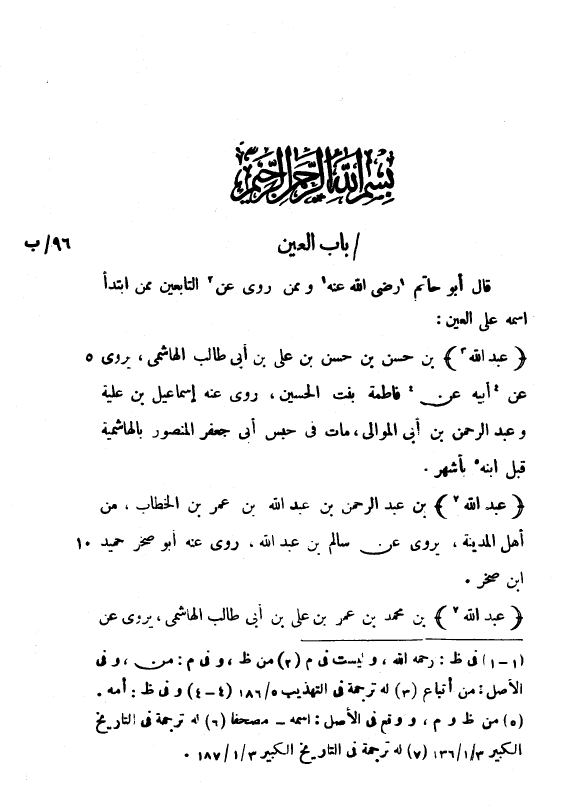 بسم الله الرحمن الرحيم
/ باب العين ٩٦/ب
قال أبو حاتم ١رضى الله عنه١ و ممن روى عن٢ التابعين ممن ابتدأ
اسمه على العين :
﴿ عبد الله٣ ﴾ بن حسن بن حسن بن على بن أبى طالب الهاشمى ، يروى ٥
عن ٤أبيه عن٤ فاطمة بنت الحسين ، روى عنه إسماعيل بن علية
و عبد الرحمن بن أبى الموالى ، مات فى حبس أبى جعفر المنصور بالهاشمية
قبل ابنه٥ بأشهر .
﴿ عبد الله٦ ﴾ بن عبد الرحمن بن عبد الله بن عمر بن الخطاب ، من
أهل المدينة ، يروى عن سالم بن عبد الله ، روى عنه أبو صخر حميد ١٠
ابن صخر .
﴿ عبد الله٧ ﴾ بن محمد بن عمر بن على بن أبى طالب الهاشمى ، يروى عن
(١-١) فى ظ : رحمه الله ، و ليست فى م (٢) من ظ ، و فى م : من ، و فى
الأصل : من أتباع (٣) له ترجمة فى التهذيب ١٨٦/٥ (٤-٤) و فى ظ : أمه .
(٥) من ظ و م ، و وقع فى الأصل : اسمه - مصحفا (٦) له ترجمة فى التاريخ
الكبير ١٣٦/١/٣ (٧) له ترجمة فى التاريخ الكبير ١٨٧/١/٣ .